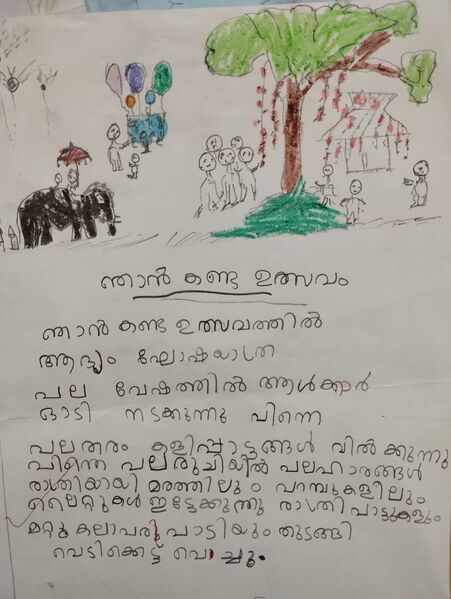 ഞാൻ കണ്ട ഉത്സവം
ഞാൻ കണ്ട ഉത്സവത്തിൽ
ആദ്യം ഘോഷയാത്ര
പല വേഷത്തിൽ ആൾക്കാർ
ഓടി നടക്കുന്നു പിന്നെ
പലതരം കളിപ്പാട്ടങ്ങൾ വിൽക്കുന്നു
പിന്നെ പലരുചിയിൽ പലഹാരങ്ങൾ
രാത്രിയായി മരത്തിലും പറമ്പുകളിലും
ലൈറ്റുകൾ ഇട്ടേക്കുന്നു രാത്രി പാട്ടുകളും
മറ്റു കലാപരു പാടിയും തുടങ്ങി
വെടിക്കെട്ട് പൊട്ടിച്ചു.